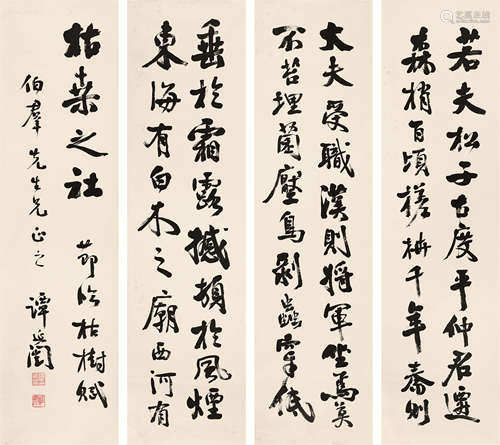 若夫松子古度平仲君遷
森梢百頃槎枿千年秦則
大夫受職漢則將軍坐焉莫
不苔埋菌壓鳥剝蟲穿低
垂於霜露撼頓於風煙
東海有白木之廟西河有
枯桑之社
節臨枯樹賦
伯羣先生兄正之
譚延闓